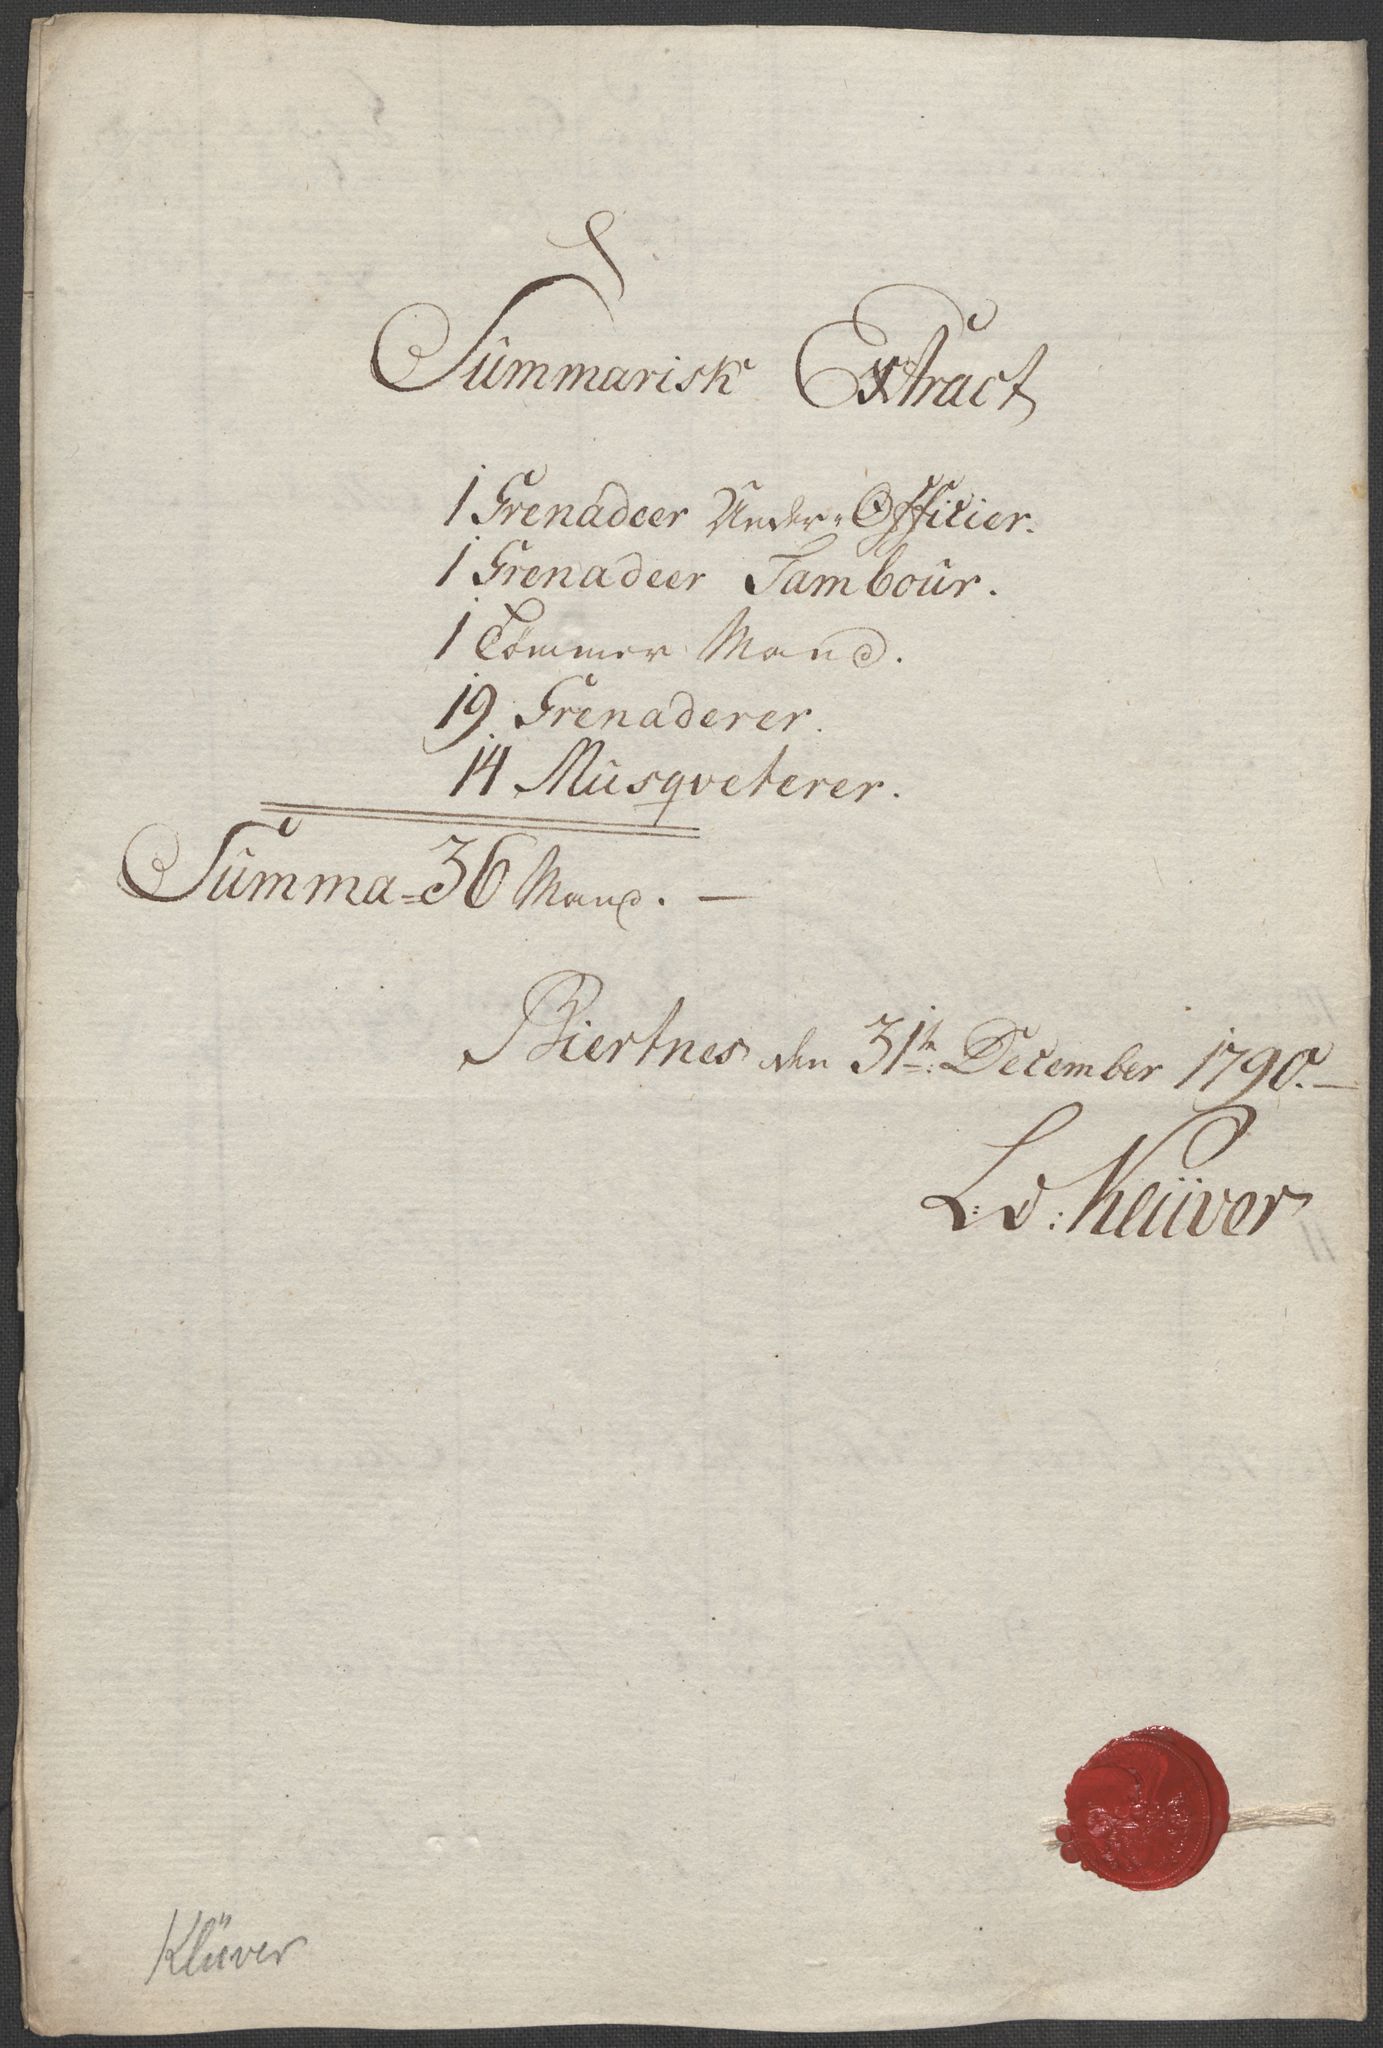 Summarisk Extract
1 Grenadeer Under-Officier.
1 Grenadeer Tambour.
1 Tømmer Mand.
19 Grenaderer.
14 Musqveterer.
Summa = 36 Mand. —
Biertnes den 31te: December 1790. —
L: v: Klüver
Klüver